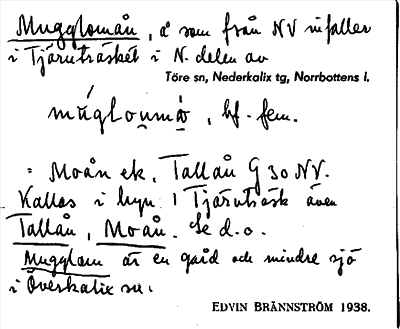 Mugglomån, å som från NV infaller
i Tjärnträsket i N. delen av
Töre sn, Nederkalix tg, Norrbottens l.
múgloumǻ, bf. fem.
= Moån ek, Tallån G 30 NV.
Kallas i byn Tjärnträsk även
Tallån, Moån. Se d.o.
Mugglom är en gård och mindre sjö
i Överkalix sn.
EDVIN BRÄNNSTRÖM 1938.